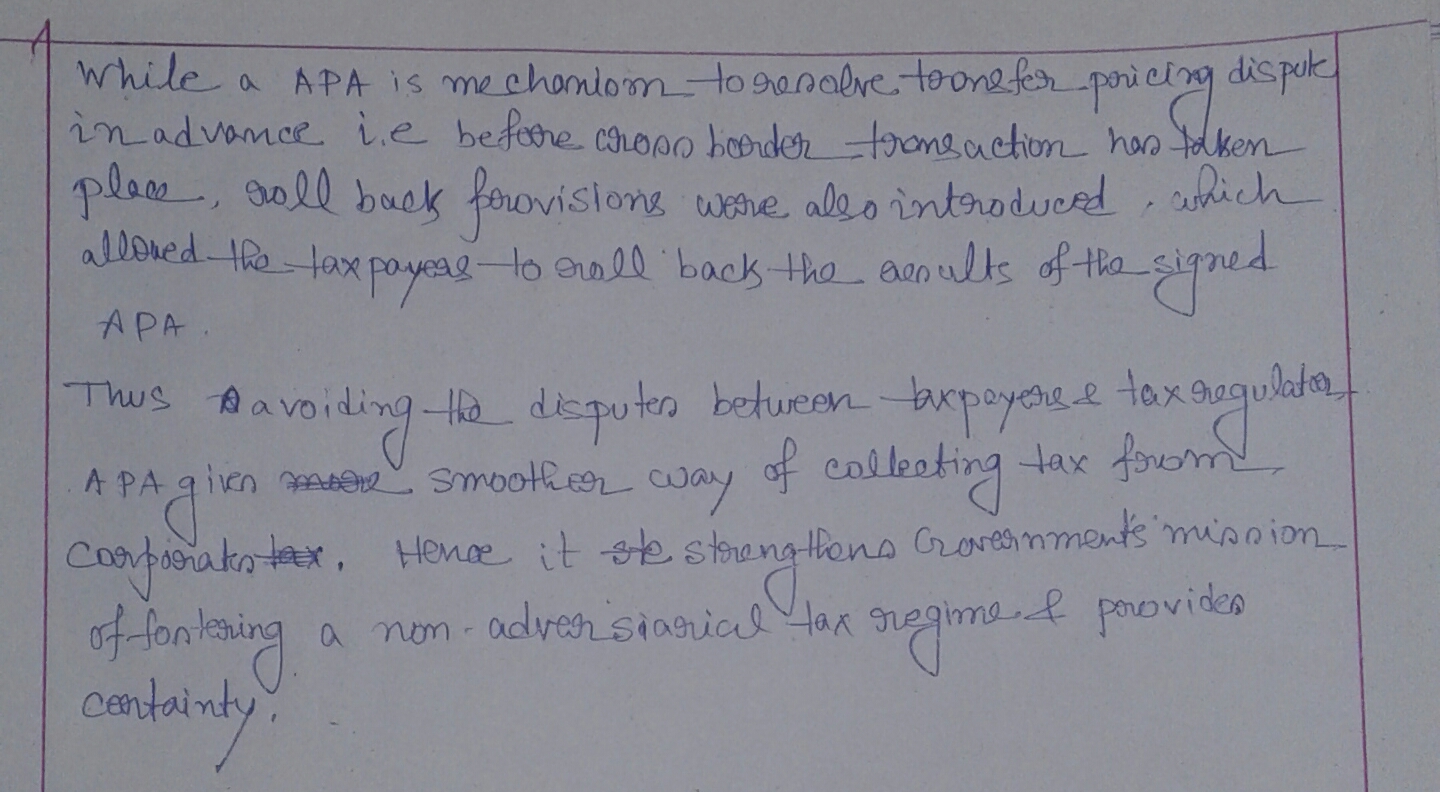 While a APA is mechanism to resolve transfer pricing dispute
in advance i.e before cross border transaction has taken
place, roll back provisions were also introduced, which
allowed the taxpayers to roll back the results of the signed
APA.
Thus avoiding the disputes between taxpayers & tax regulator,
APA gives smoother way of collecting tax from
Corporates. Hence it strengthens Government's mission
of fostering a non-adversiarial tax regime & provides
certainty.